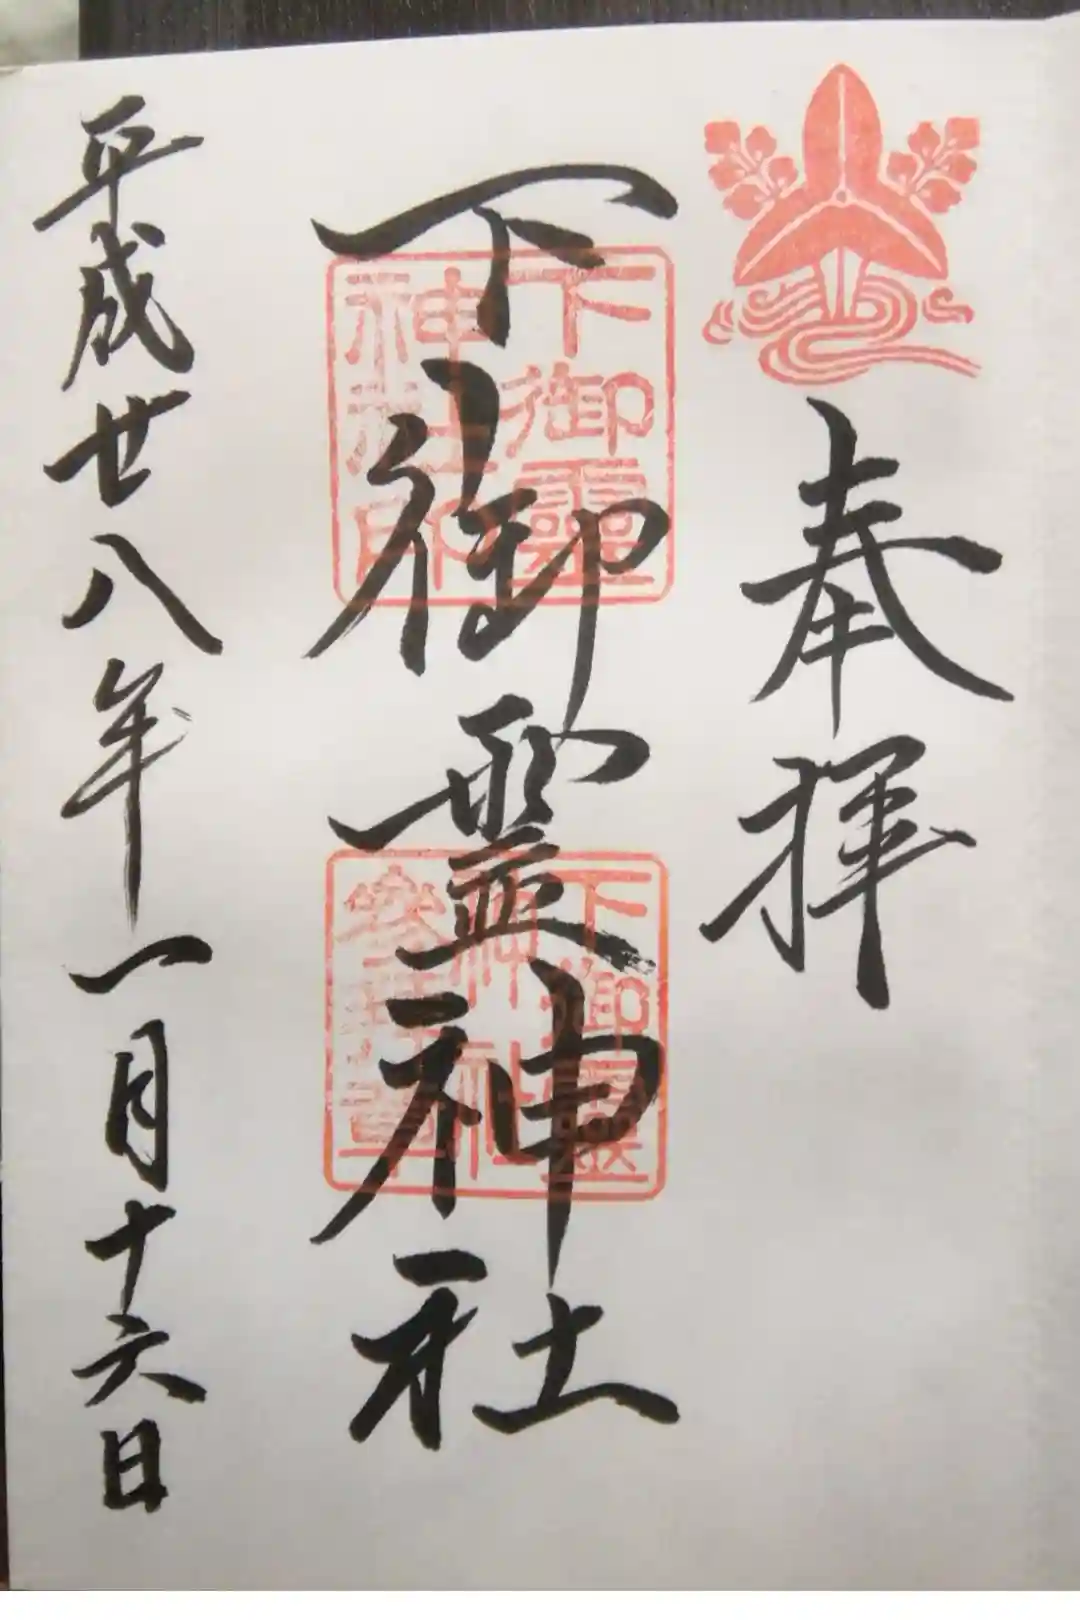 奉拝
下御霊神社
下御靈
神社印
下御靈
神社
参拝章
平成廿八年一月十六日